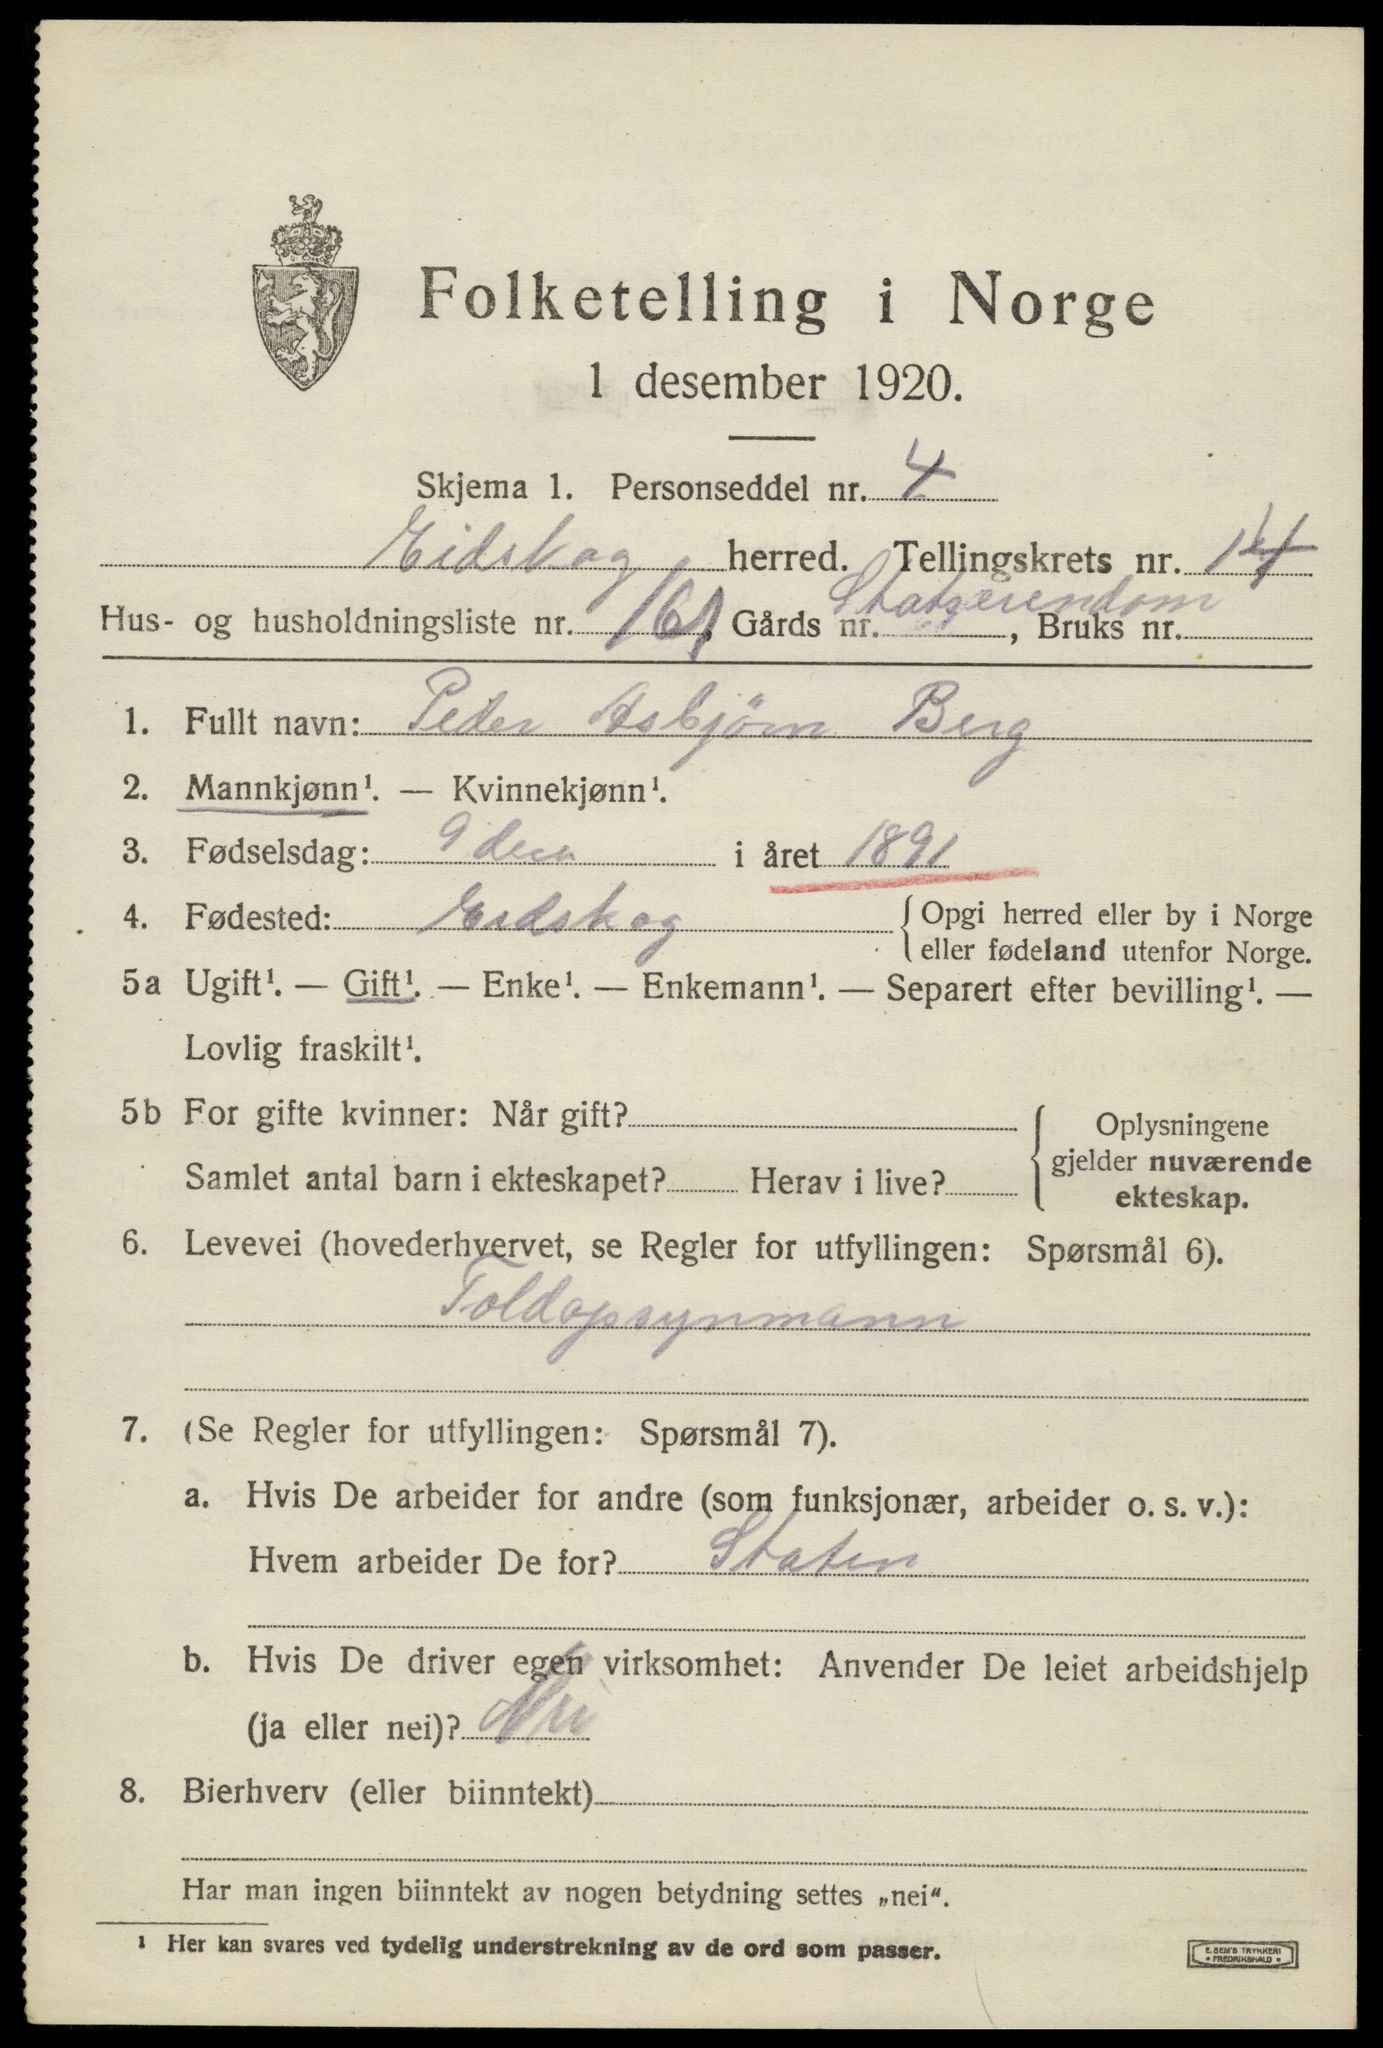 Folketelling i Norge
1 desember 1920.
Skjema 1. Personseddel nr. 4
Eidskog herred. Tellingskrets nr. 14
Hus- og husholdningsliste nr. 161, Gårds nr. Statseiendom, Bruks nr.
1. Fullt navn: Peder Asbjörn Berg
2. Mannkjønn¹. — Kvinnekjønn¹.
3. Fødselsdag: 9 des i året 1891
4. Fødested: Eidskog {Opgi herred eller by i Norge
eller fødeland utenfor Norge.
5a Ugift¹. — Gift¹. — Enke¹. — Enkemann¹. — Separert efter bevilling¹. —
Lovlig fraskilt¹.
5b For gifte kvinner: Når gift?
Samlet antal barn i ekteskapet? Herav i live?
Oplysningene
gjelder nuværende
ekteskap.
6. Levevei (hovederhvervet, se Regler for utfyllingen: Spørsmål 6).
Toldopsynmann
7. (Se Regler for utfyllingen: Spørsmål 7).
a. Hvis De arbeider for andre (som funksjonær, arbeider o. s. v.):
Hvem arbeider De for? Staten
b. Hvis De driver egen virksomhet: Anvender De leiet arbeidshjelp
(ja eller nei)? Nei
8. Bierhverv (eller biinntekt)
Har man ingen biinntekt av nogen betydning settes „nei“.
¹ Her kan svares ved tydelig understrekning av de ord som passer.
E. SEM'S TRYKKERI
• FREDRIKSHALD •